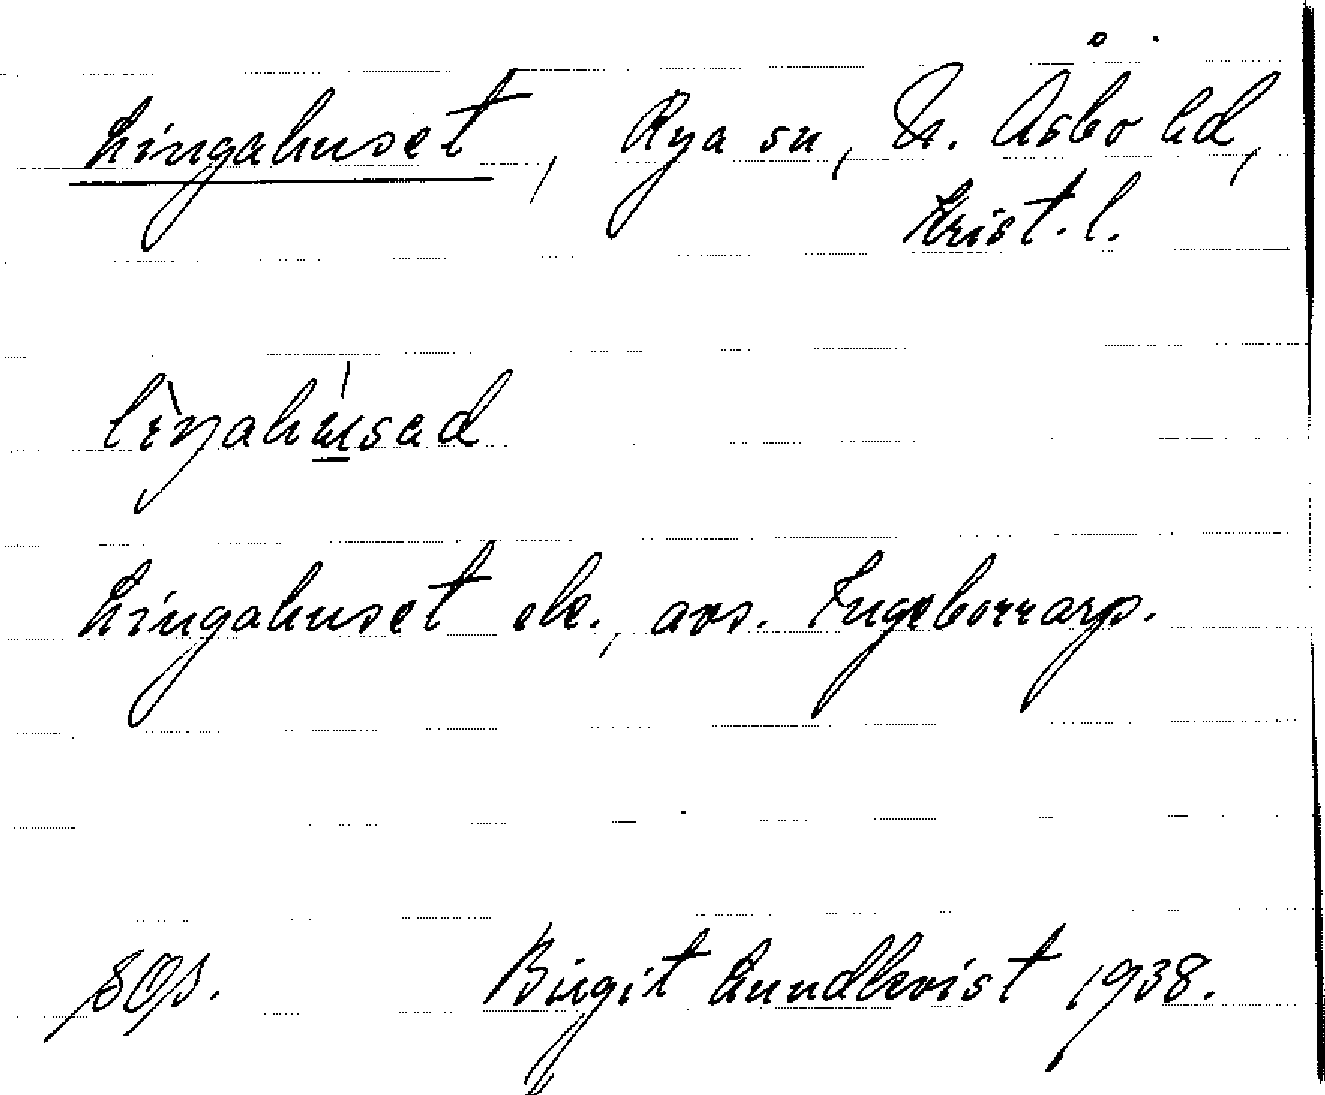 Lingahuset, Rya sn, N. Åsbo hd,
Krist. l.
Lingahuset ek., avs. Ingeborrarp.
SOS. Birgit Lundkvist 1938.